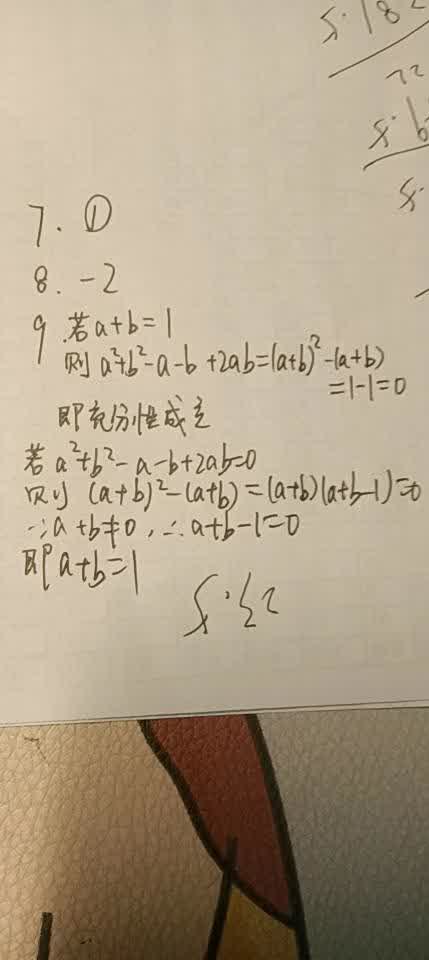 7. ①
8. -2
9. 若a+b=1
则 a²+b²-a-b+2ab=(a+b)²-(a+b)
=1-1=0
即充分性成立
若 a²+b²-a-b+2ab=0
则 (a+b)²-(a+b)=(a+b)(a+b-1)=0
∵a+b≠0,∴a+b-1=0
即a+b=1